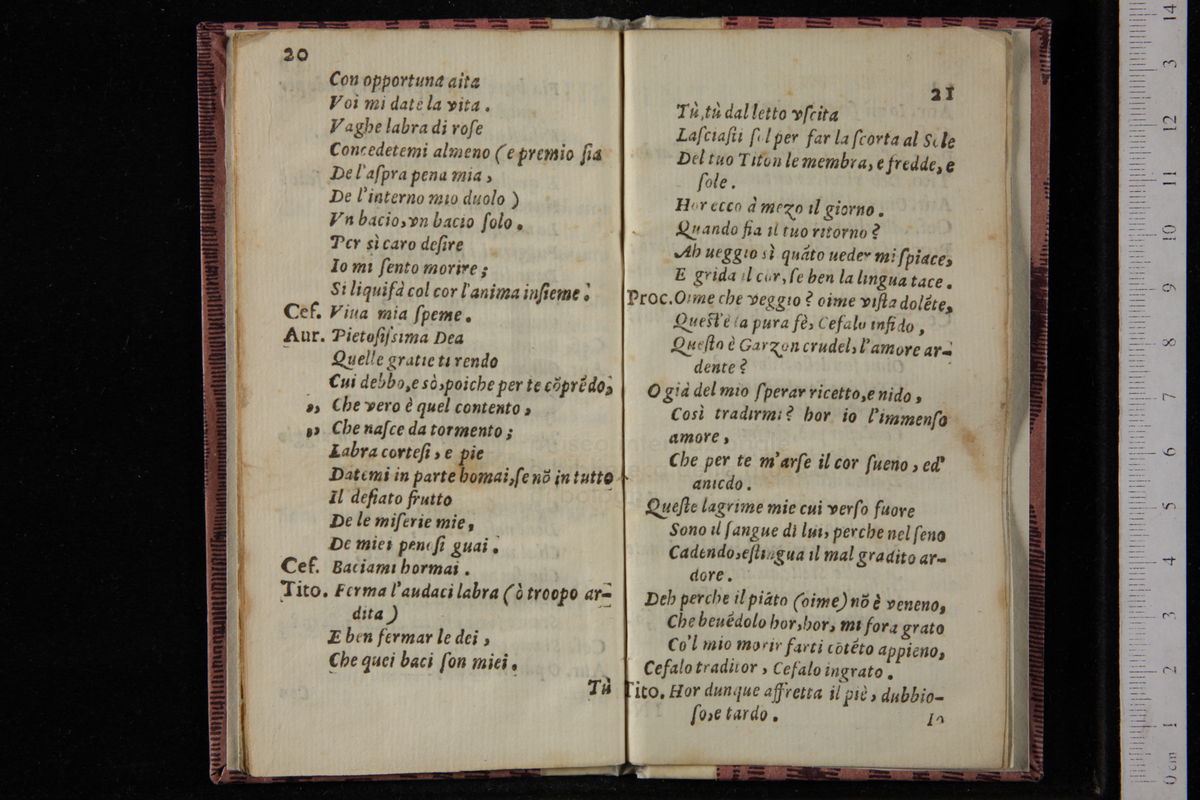 20
Con opportuna aita
Voi mi date la vita.
Vaghe labra di roſe
Concedetemi almeno (e premio ſia
De l'aſpra pena mia,
De l'interno mio duolo)
Vn bacio, vn bacio ſolo.
Per sì caro deſire
Io mi ſento morire;
Si liquifà col cor l'anima inſieme.
Cef. Viua mia ſpeme.
Aur. Pietoſiſsima Dea
Quelle gratie ti rendo
Cui debbo, e sò, poiche per te cõprẽdo,
„ Che vero è quel contento,
„ Che naſce da tormento;
Labra corteſi, e pie
Datemi in parte homai, ſe nõ in tutto
Il deſiato frutto
De le miſerie mie,
De miei penoſi guai.
Cef. Baciami hormai.
Tito. Ferma l'audaci labra (ò troopo ar-
dita)
E ben fermar le dei,
Che quei baci ſon miei.
Tù
21
Tù, tù dal letto vſcita
Laſciaſti ſol per far la ſcorta al Sole
Del tuo Titon le membra, e fredde, e
ſole.
Hor ecco à mezo il giorno.
Quando fia il tuo ritorno?
Ah ueggio sì quãto ueder mi ſpiace,
E grida il cor, ſe ben la lingua tace.
Proc. Oime che veggio? oime viſta dolẽte,
Queſt'è la pura fè, Cefalo infido,
Queſto è Garzon crudel, l'amore ar-
dente?
O già del mio ſperar ricetto, e nido,
Così tradirmi? hor io l'immenſo
amore,
Che per te m'arſe il cor ſueno, ed'
ancido.
Queſte lagrime mie cui verſo fuore
Sono il ſangue di lui, perche nel ſeno
Cadendo, eſtingua il mal gradito ar-
dore.
Deh perche il piãto (oime) nõ è veneno,
Che beuẽdolo hor, hor, mi fora grato
Co'l mio morir farti cõtẽto appieno,
Cefalo traditor, Cefalo ingrato.
Tito. Hor dunque affretta il piè, dubbio-
ſo, e tardo.
Io
0 cm 1 2 3 4 5 6 7 8 9 10 11 12 3 14